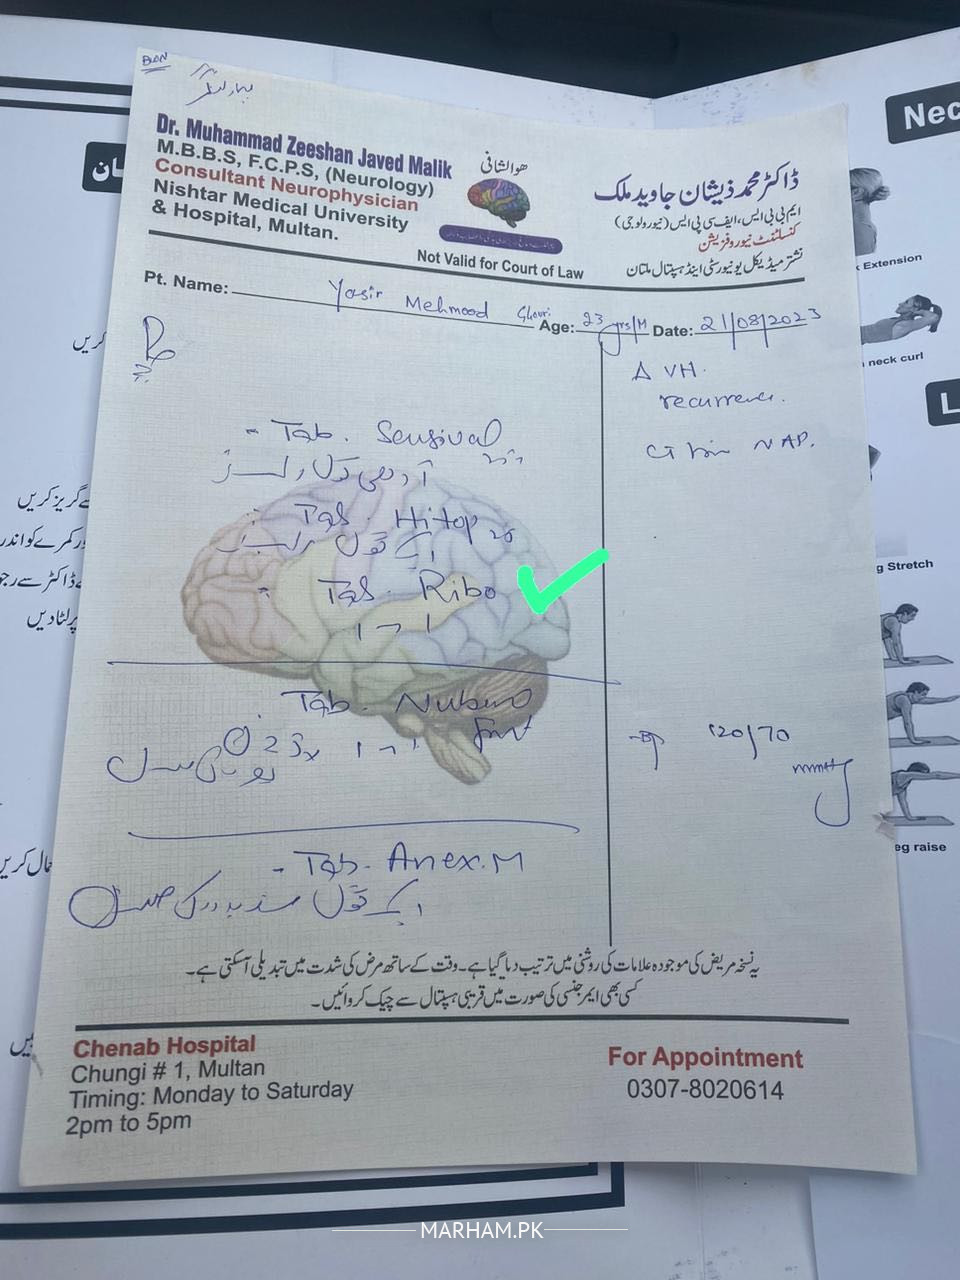 Dr. Muhammad Zeeshan Javed Malik
M.B.B.S, F.C.P.S, (Neurology)
Consultant Neurophysician
Nishtar Medical University
& Hospital, Multan.
ھوالشافی
Not Valid for Court of Law
ڈاکٹر محمد ذیشان جاوید ملک
ایم بی بی ایس، ایف سی پی ایس (نیورولوجی)
کنسلٹنٹ نیوروفزیشن
نشتر میڈیکل یونیورسٹی اینڈ ہسپتال ملتان
Pt. Name: Yasir Mehmood Ghouri Age: 23 yrs/M Date: 21/08/2023
Δ VH.
recurrence.
CT NAD.
- Tab. Sensival
Tab. Hitop
ایک گولی
Tab. Ribo
1 - 1
Tab. Nuberol
Fort
1 - 1
BP 120/70
mmHg
- Tab. Anex.M
ایک گولی
یہ نسخہ مریض کی موجودہ علامات کی روشنی میں ترتیب دیا گیا ہے۔ وقت کے ساتھ مرض کی شدت میں تبدیلی آسکتی ہے۔
کسی بھی ایمرجنسی کی صورت میں قریبی ہسپتال سے چیک کروائیں۔
Chenab Hospital
Chungi # 1, Multan
Timing: Monday to Saturday
2pm to 5pm
For Appointment
0307-8020614
Nec
Extension
neck curl
L
g Stretch
eg raise
کریں
سے گریز کریں
ور کمرے کو اندر
ڈاکٹر سے رجو
پر لٹا دیں
MARHAM.PK